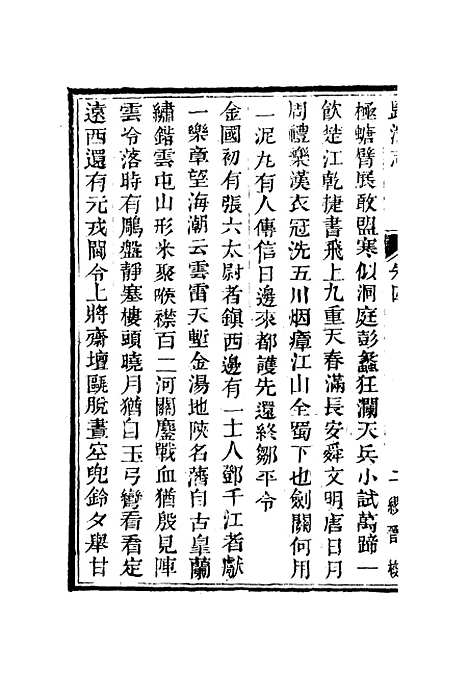 歸潛志 卷四
極螗臂展敢盟寒似洞庭彭蠡狂瀾天兵小試萬蹄一
飲楚江乾捷書飛上九重天春滿長安舜文明唐日月
周禮樂漢衣冠洗五川烟瘴江山全蜀下也劍關何用
一泥丸有人傳信日邊來都護先還終鄒平令
金國初有張六太尉者鎮西邊有一士人鄧千江者獻
一樂章望海潮云雲雷天塹金湯地陝名藩自古皐蘭
繡錯雲屯山形米聚喉襟百二河關鏖戰血猶殷見陣
雲令落時有鵰盤靜塞樓頭曉月猶自玉弓彎看看定
遠西還有元戎閫令上將齋壇甌脫晝空兜鈴夕舉甘